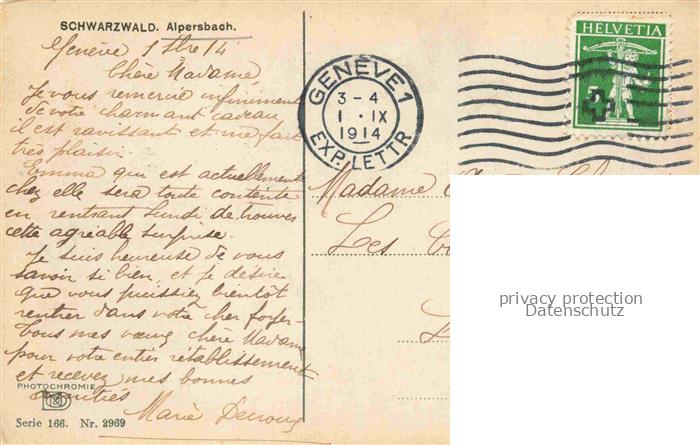 SCHWARZWALD. Alpersbach.
Genève 1 7bre 14
Chère Madame
Je vous remercie infiniment
de votre charmant cadeau
il est ravissant et me fait
très plaisir
Emma qui est actuellement
chez elle sera toute contente
en rentrant lundi de trouver
cette agréable surprise.
Je suis heureuse de vous
savoir si bien et je désire
que vous puissiez bientôt
rentrer dans votre cher foyer
Tous mes vœux chère Madame
pour votre entier rétablissement
et recevez mes bonnes
amitiés
Marie
PHOTOCHROMIE
Serie 166. Nr. 2969
GENÈVE 1
3-4
1. IX
1914
EXP. LETTR.
HELVETIA
Madame
Les
privacy protection
Datenschutz